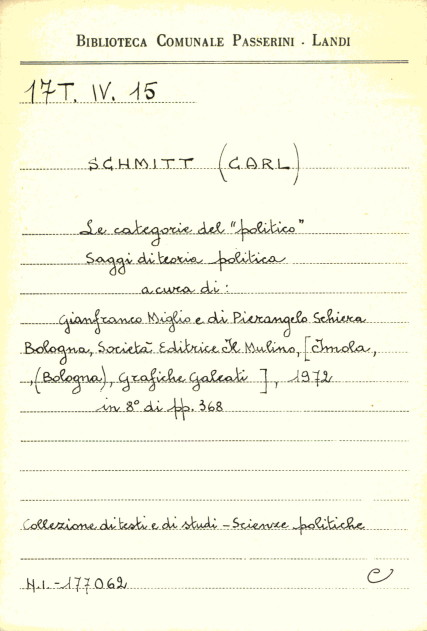 BIBLIOTECA COMUNALE PASSERINI - LANDI
17T. IV. 15
SCHMITT (CARL)
Le categorie del "politico"
Saggi di teoria politica
a cura di:
Gianfranco Miglio e di Pierangelo Schiera
Bologna, Società Editrice Il Mulino, [Imola,
,(Bologna), Grafiche Galeati ], 1972
in 8° di pp. 368
Collezione di testi e di studi - Scienze politiche
N.I. - 177062
C